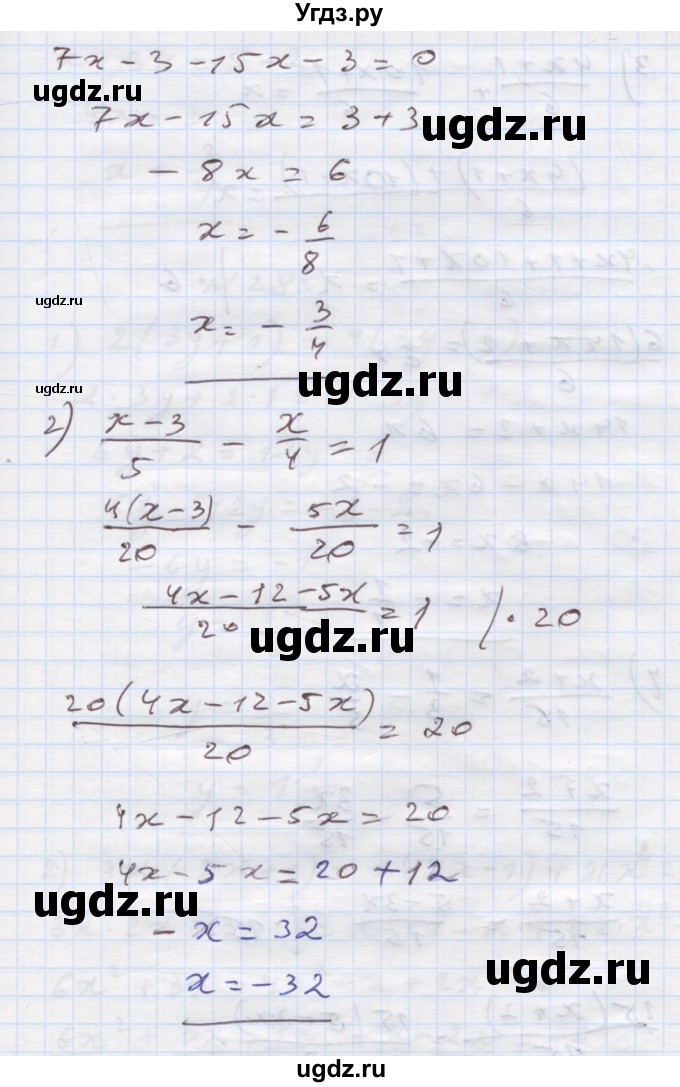 Угдз.ру
7x - 3 - 15x - 3 = 0
ugdz.ru
7x - 15x = 3 + 3
ugdz.ru
- 8x = 6
x = - 6/8
ugdz.ru
x = - 3/4
ugdz.ru
ugdz.ru
2) (x - 3)/5 - x/4 = 1
4(x - 3)/20 - 5x/20 = 1
(4x - 12 - 5x)/20 = 1 | · 20
ugdz.ru
20(4x - 12 - 5x)/20 = 20
4x - 12 - 5x = 20
4x - 5x = 20 + 12
ugdz.ru
- x = 32
ugdz.ru
x = - 32
ugdz.ru